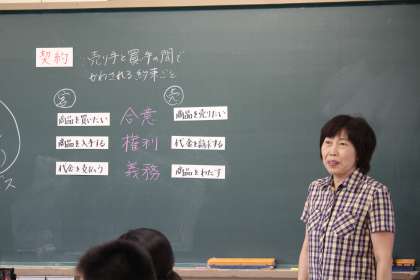 契約 売り手と買い手の間で
かわされる約束ごと
客 売
商品を買いたい 合意 商品を売りたい
商品を入手する 権利 代金を請求する
代金を支払う 義務 商品をわたす
ス